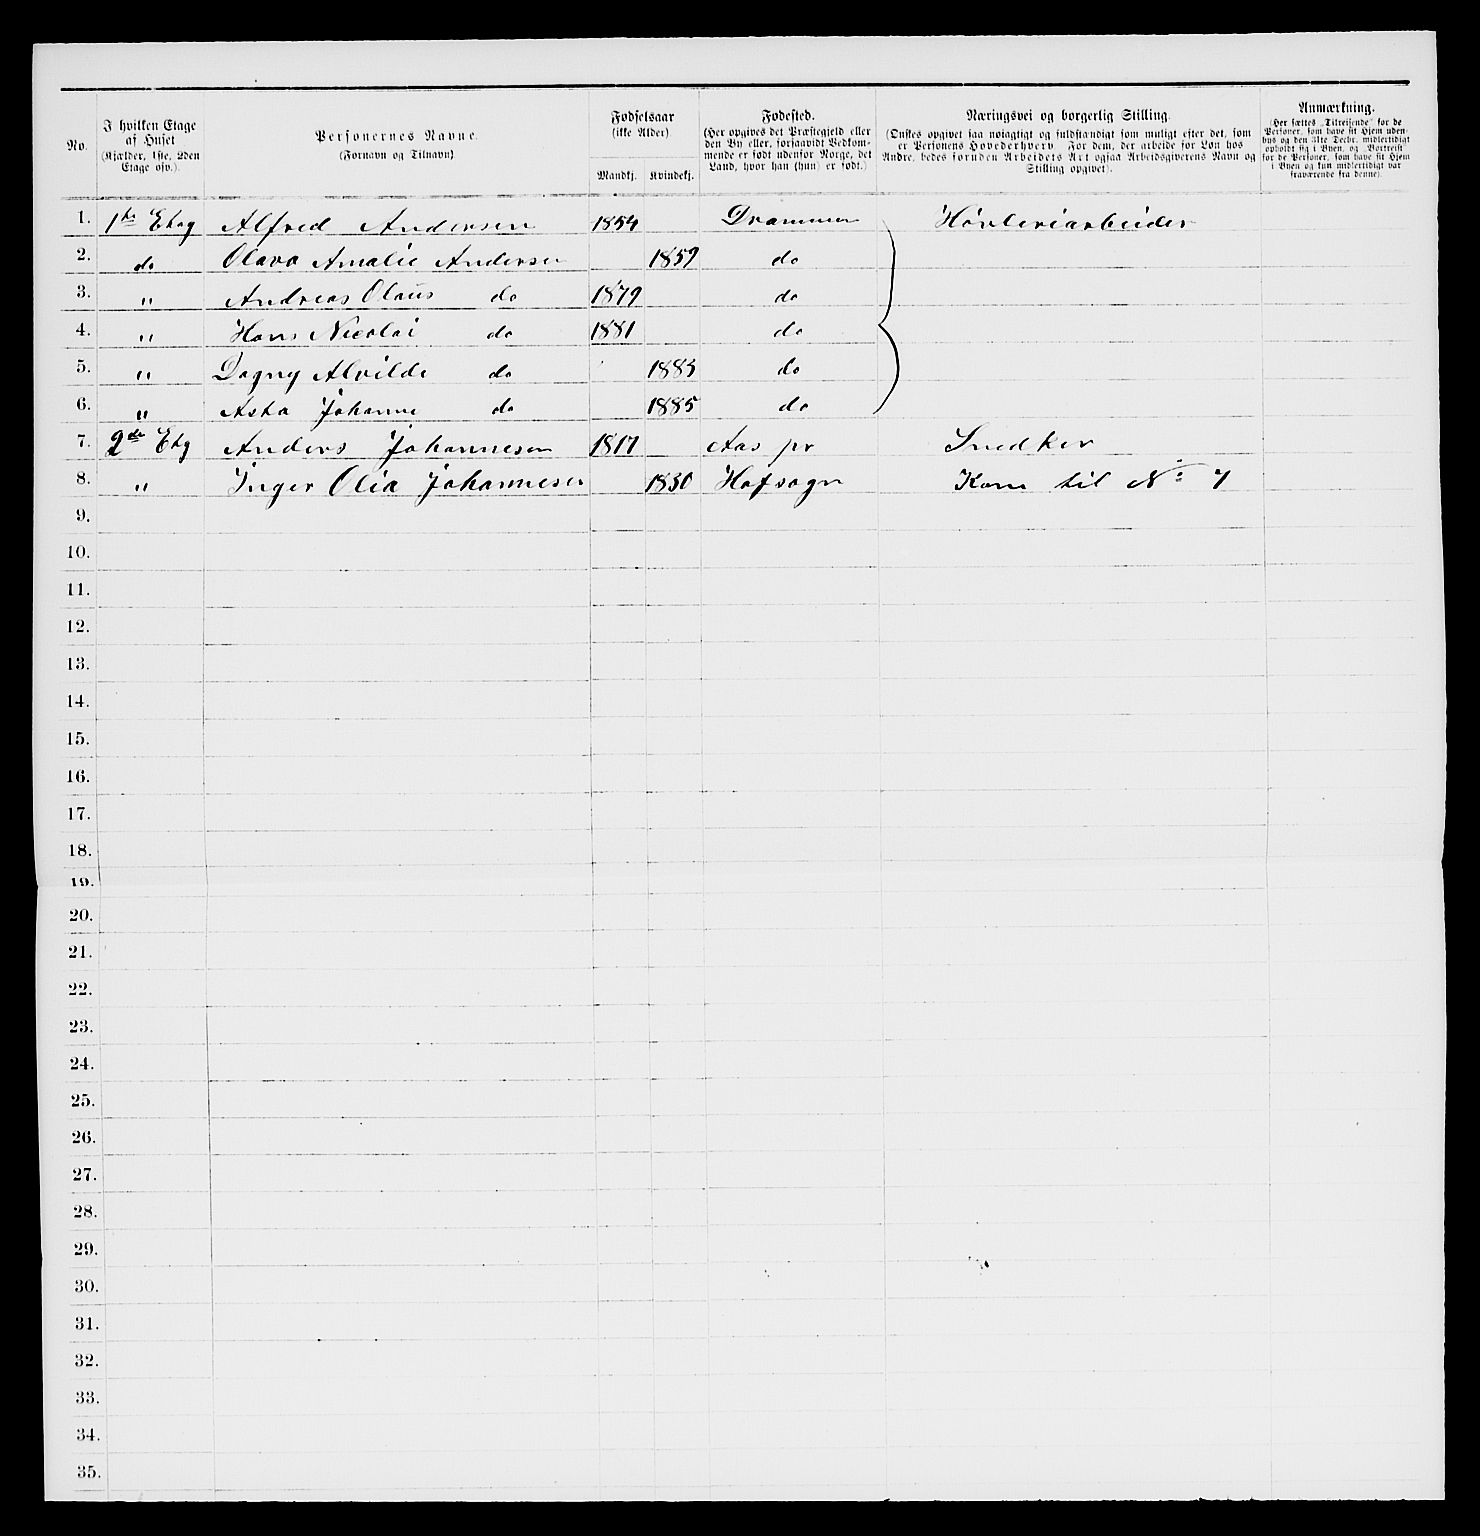 No.
I hvilken Etage af Huset (Kjælder, 1ste, 2den Etage osv.).
Personernes Navne. (Fornavn og Tilnavn)
Fødselsaar (ikke Alder)
Mandkj. Kvindekj.
Fødested. (Her opgives det Præstegjeld eller den By eller, forsaavidt Vedkommende er født udenfor Norge, det Land, hvor han (hun) er født.)
Næringsvei og borgerlig Stilling. (Ønskes opgivet saa nøiagtigt og fuldstændigt som muligt efter det, som er Personens Hovederhverv. For dem, der arbeide for Løn hos Andre, bedes foruden Arbeidets Art ogsaa Arbeidsgiverens Navn og Stilling opgivet).
Anmærkning. (Her sættes „Tilreisende" for de Personer, som have sit Hjem udenbys og den 31te Decbr. midlertidigt opholdt sig i Byen, og „Bortreist" for de Personer, som have sit Hjem i Byen og kun midlertidigt var fraværende fra denne).
1. 1te Etag Alfred Andersen 1854 Drammen Høvleriarbeider
2. do Olava Amalie Andersen 1859 do
3. " Andreas Olaus do 1879 do
4. " Hans Nicolai do 1881 do
5. " Dagny Alvilde do 1883 do
6. " Asta Johanne do 1885 do
7. 2de Etg Anders Johannesen 1817 Aas pr Snedker
8. " Inger Olia Johannesen 1830 Hofsogn Kone til No 7
9.
10.
11.
12.
13.
14.
15.
16.
17.
18.
19.
20.
21.
22.
23.
24.
25.
26.
27.
28.
29.
30.
31.
32.
33.
34.
35.